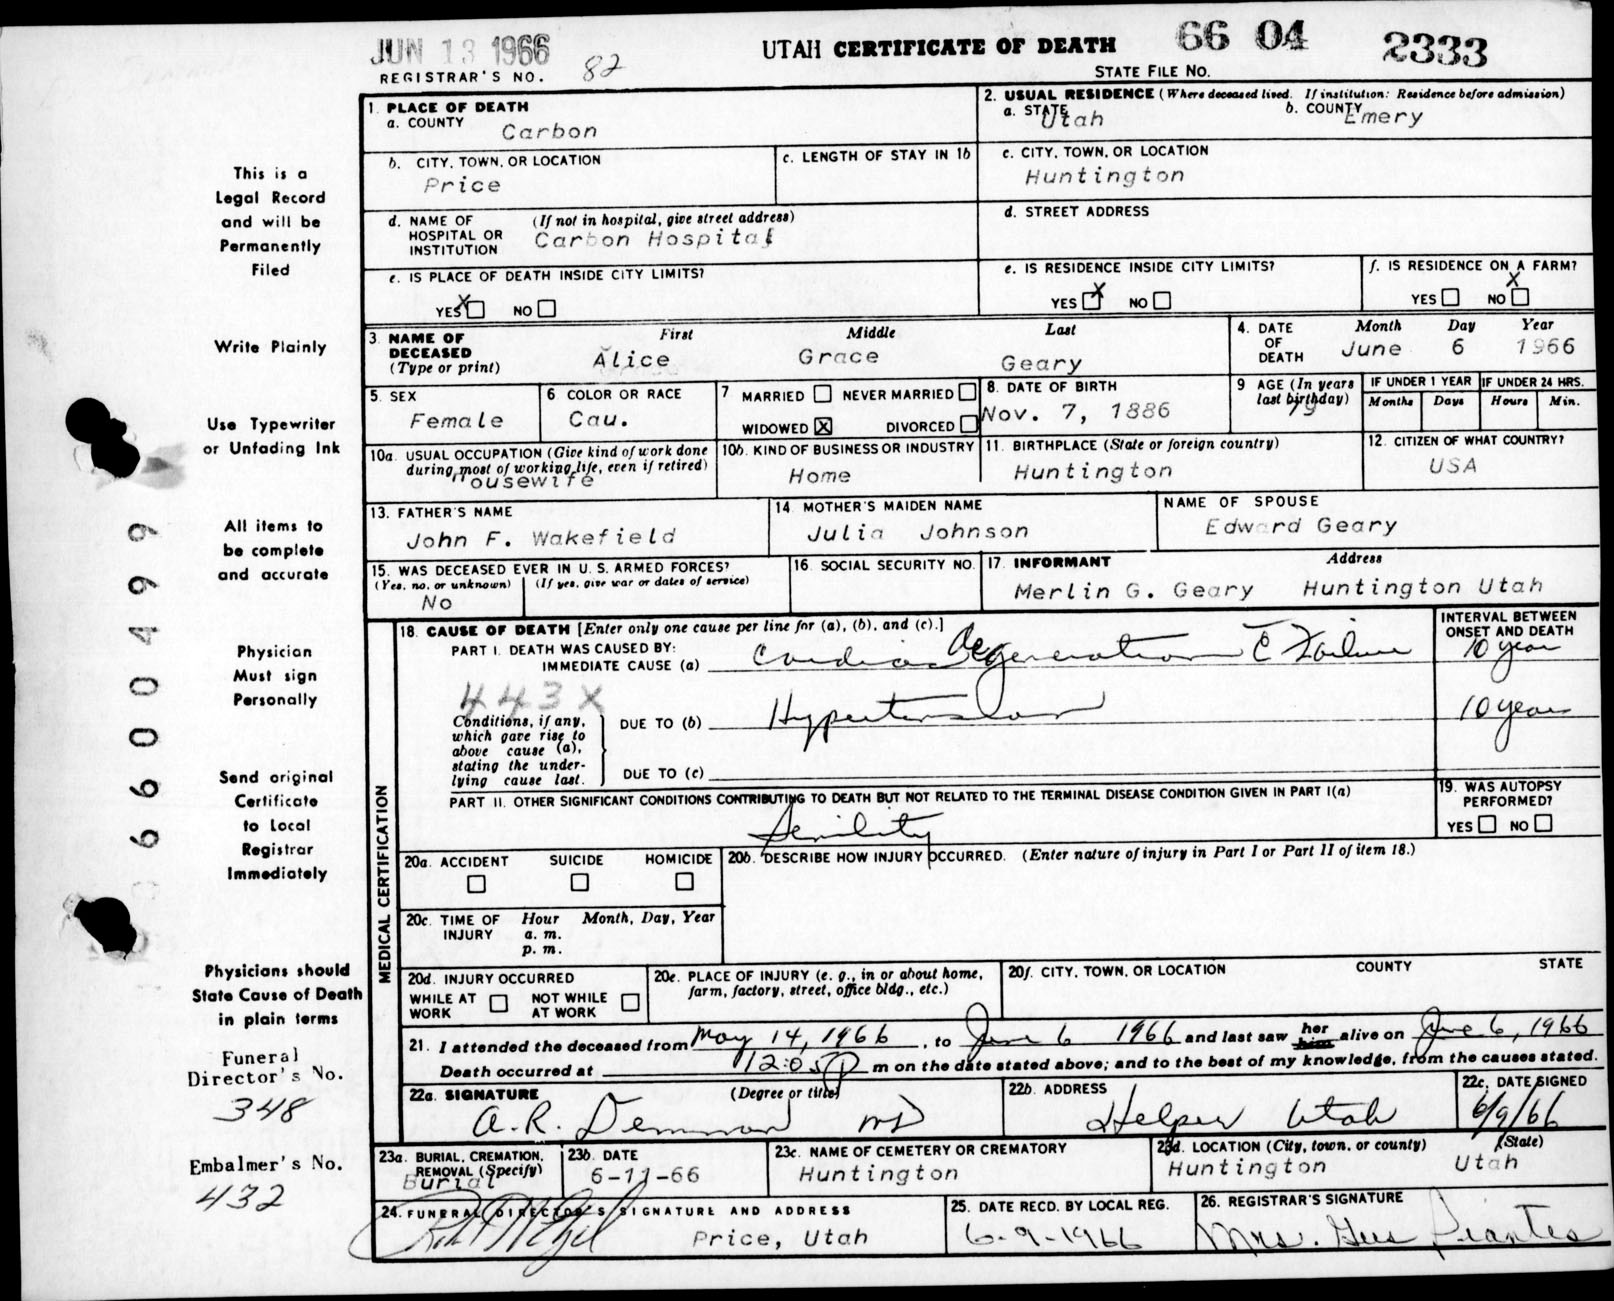 JUN 13 1966
UTAH CERTIFICATE OF DEATH 66 04 2333
REGISTRAR'S NO. 82
STATE FILE NO.
1. PLACE OF DEATH
a. COUNTY Carbon
2. USUAL RESIDENCE (Where deceased lived. If institution: Residence before admission)
a. STATE Utah b. COUNTY Emery
b. CITY, TOWN, OR LOCATION Price
c. LENGTH OF STAY IN 1b
c. CITY, TOWN, OR LOCATION Huntington
d. NAME OF HOSPITAL OR INSTITUTION (If not in hospital, give street address) Carbon Hospital
d. STREET ADDRESS
e. IS PLACE OF DEATH INSIDE CITY LIMITS?
YES X NO
e. IS RESIDENCE INSIDE CITY LIMITS?
YES X NO
f. IS RESIDENCE ON A FARM?
YES NO X
3. NAME OF DECEASED (Type or print)
First Middle Last
Alice Grace Geary
4. DATE OF DEATH Month Day Year
June 6 1966
5. SEX Female
6 COLOR OR RACE Cau.
7 MARRIED NEVER MARRIED
WIDOWED X DIVORCED
8. DATE OF BIRTH Nov. 7, 1886
9 AGE (In years last birthday) 79
IF UNDER 1 YEAR Months Days
IF UNDER 24 HRS. Hours Min.
10a. USUAL OCCUPATION (Give kind of work done during most of working life, even if retired) Housewife
10b. KIND OF BUSINESS OR INDUSTRY Home
11. BIRTHPLACE (State or foreign country) Huntington
12. CITIZEN OF WHAT COUNTRY? USA
13. FATHER'S NAME John F. Wakefield
14. MOTHER'S MAIDEN NAME Julia Johnson
NAME OF SPOUSE Edward Geary
15. WAS DECEASED EVER IN U. S. ARMED FORCES?
(Yes, no, or unknown) (If yes, give war or dates of service)
No
16. SOCIAL SECURITY NO.
17. INFORMANT Address
Merlin G. Geary Huntington Utah
18. CAUSE OF DEATH [Enter only one cause per line for (a), (b), and (c).]
INTERVAL BETWEEN ONSET AND DEATH
PART I. DEATH WAS CAUSED BY:
IMMEDIATE CAUSE (a) Cardiac degeneration c̄ Failure 10 year
443X
Conditions, if any, which gave rise to above cause (a), stating the underlying cause last.
DUE TO (b) Hypertension 10 year
DUE TO (c)
PART II. OTHER SIGNIFICANT CONDITIONS CONTRIBUTING TO DEATH BUT NOT RELATED TO THE TERMINAL DISEASE CONDITION GIVEN IN PART I(a)
Senility
19. WAS AUTOPSY PERFORMED?
YES NO
20a. ACCIDENT SUICIDE HOMICIDE
20b. DESCRIBE HOW INJURY OCCURRED. (Enter nature of injury in Part I or Part II of item 18.)
20c. TIME OF INJURY Hour Month, Day, Year
a. m.
p. m.
20d. INJURY OCCURRED
WHILE AT WORK NOT WHILE AT WORK
20e. PLACE OF INJURY (e. g., in or about home, farm, factory, street, office bldg., etc.)
20f. CITY, TOWN, OR LOCATION COUNTY STATE
21. I attended the deceased from May 14, 1966, to June 6 1966 and last saw her him alive on June 6, 1966
Death occurred at 12:05 P m on the date stated above; and to the best of my knowledge, from the causes stated.
22a. SIGNATURE (Degree or title)
A. R. Demman MD
22b. ADDRESS Helper Utah
22c. DATE SIGNED 6/9/66
23a. BURIAL, CREMATION, REMOVAL (Specify) Burial
23b. DATE 6-11-66
23c. NAME OF CEMETERY OR CREMATORY Huntington
23d. LOCATION (City, town, or county) (State)
Huntington Utah
24. FUNERAL DIRECTOR'S SIGNATURE AND ADDRESS
Price, Utah
25. DATE RECD. BY LOCAL REG. 6-9-1966
26. REGISTRAR'S SIGNATURE
Mrs. Gus Piantes
MEDICAL CERTIFICATION
This is a
Legal Record
and will be
Permanently
Filed
Write Plainly
Use Typewriter
or Unfading Ink
All items to
be complete
and accurate
Physician
Must sign
Personally
Send original
Certificate
to Local
Registrar
Immediately
Physicians should
State Cause of Death
in plain terms
Funeral
Director's No.
348
Embalmer's No.
432
6600499